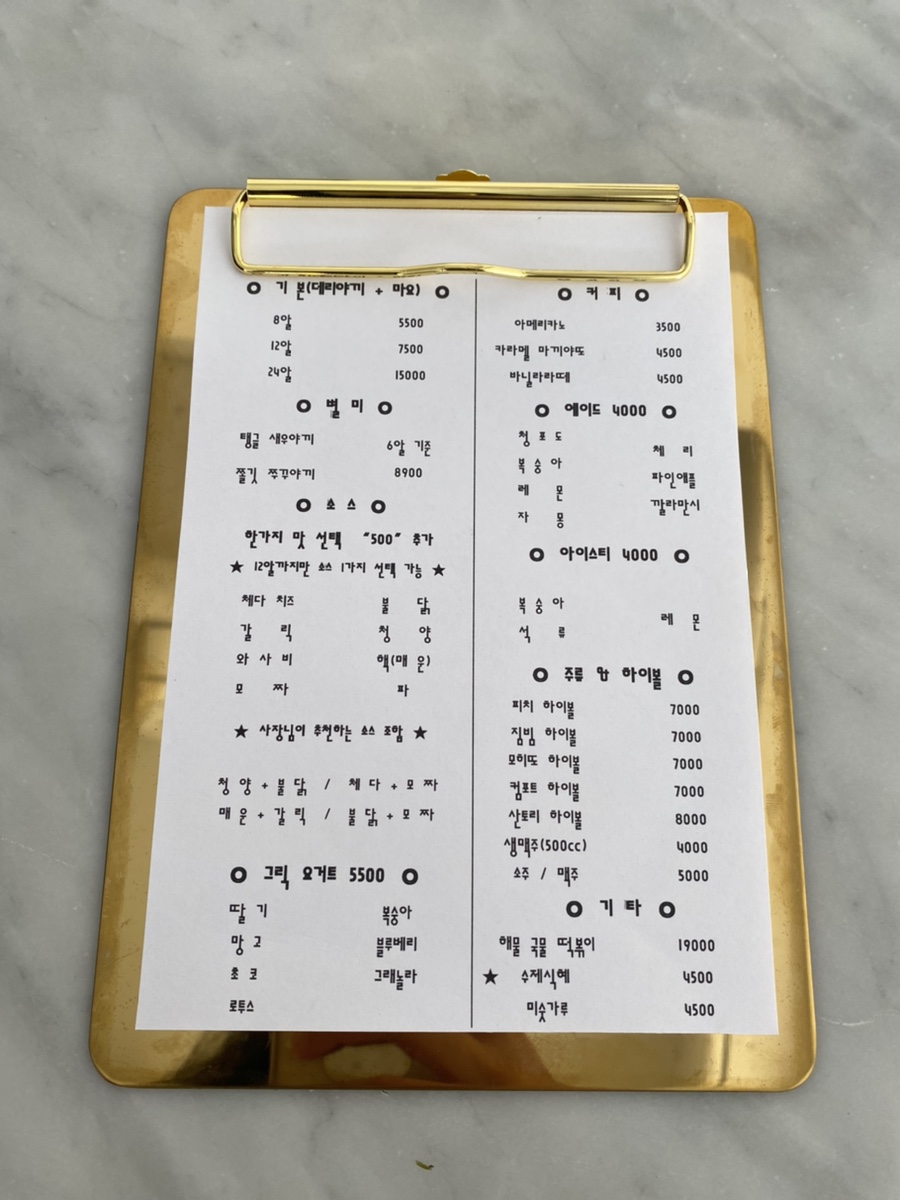 기 본(데리야끼 + 마요)
8알 5500
12알 7500
24알 15000
별 미
탱글 새우야끼 6알 기준
쫄깃 쭈꾸야끼 8900
소 스
한가지 맛 선택 "500" 추가
★ 12알까지만 소스 1가지 선택 가능 ★
체다 치즈 불 닭
갈 릭 청 양
와 사 비 핵(매 운)
모 짜 파
★ 사장님이 추천하는 소스 조합 ★
청 양 + 불 닭 / 체 다 + 모 짜
매 운 + 갈 릭 / 불 닭 + 모 짜
그릭 요거트 5500
딸 기 복숭아
망 고 블루베리
초 코 그래놀라
로투스
커 피
아메리카노 3500
카라멜 마끼야또 4500
바닐라라떼 4500
에이드 4000
청 포 도 체 리
복 숭 아 파인애플
레 몬 깔라만시
자 몽
아이스티 4000
복 숭 아 레 몬
석 류
주류 및 하이볼
피치 하이볼 7000
짐빔 하이볼 7000
모히또 하이볼 7000
컴포트 하이볼 7000
산토리 하이볼 8000
생맥주(500cc) 4000
소주 / 맥주 5000
기 타
해물 국물 떡볶이 19000
★ 수제식혜 4500
미숫가루 4500